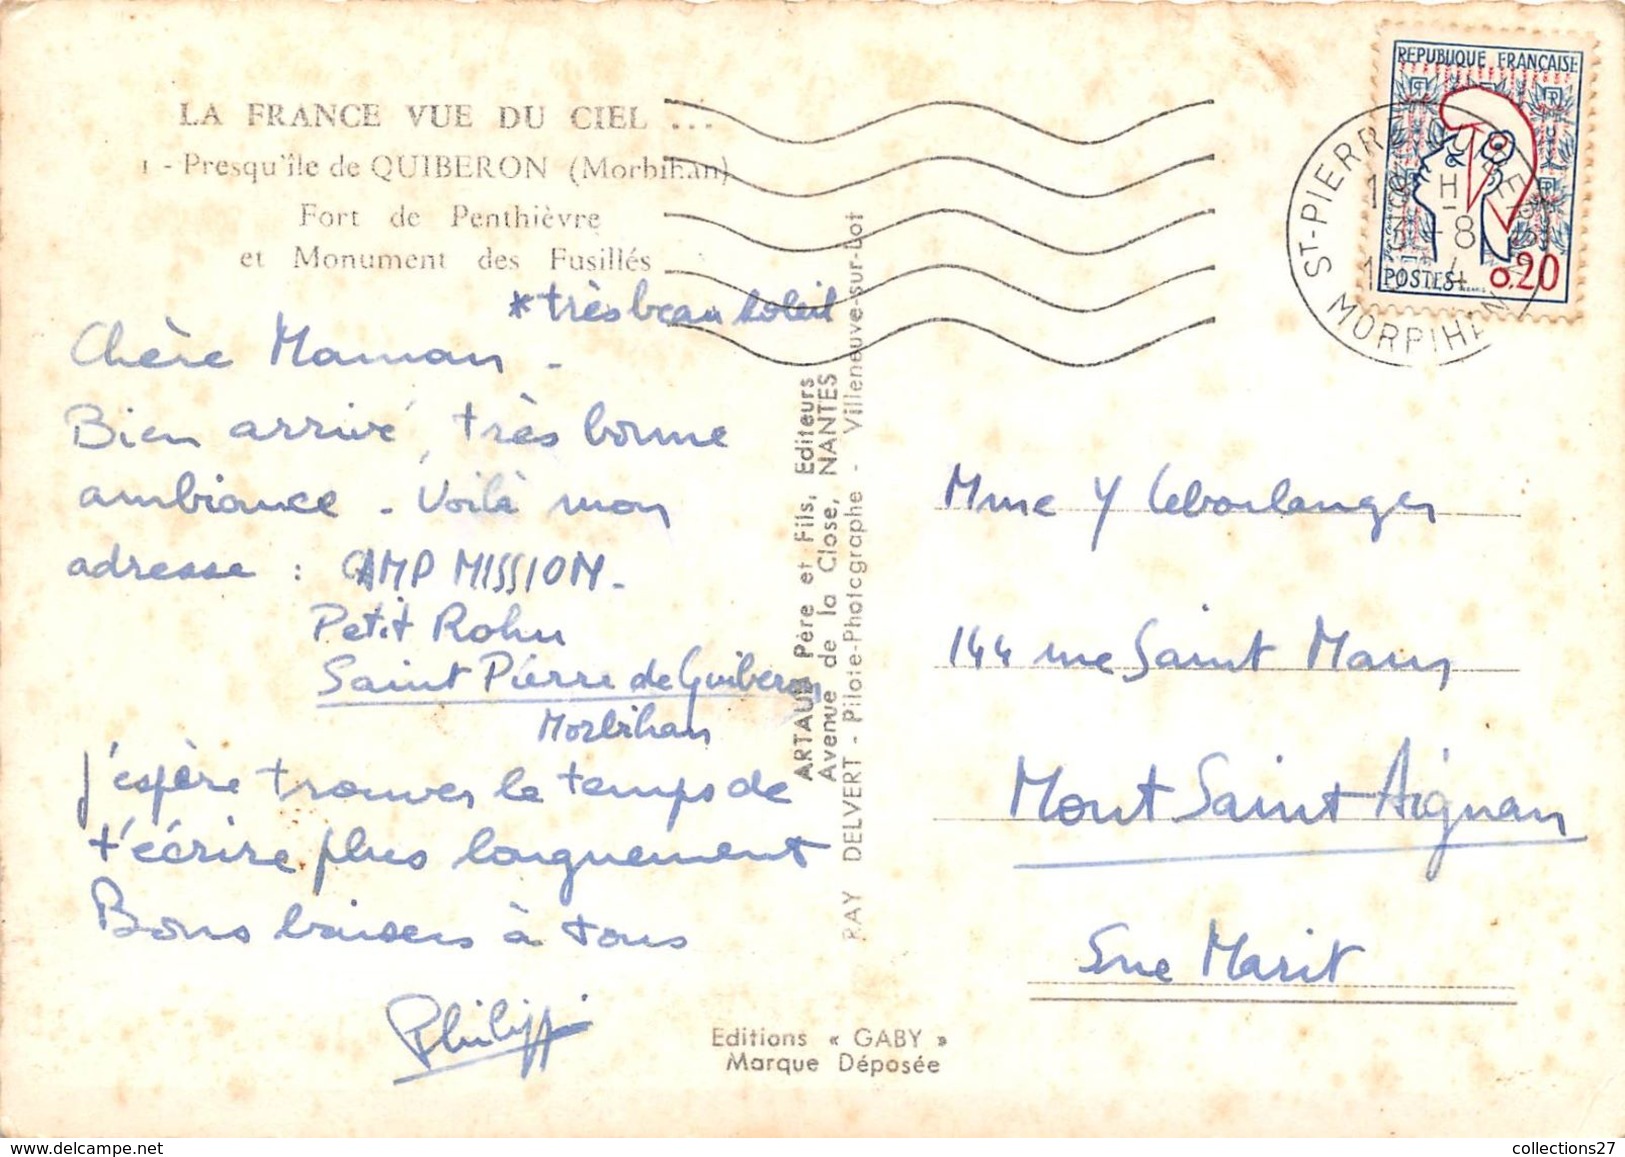 LA FRANCE VUE DU CIEL ...
1 - Presqu'île de QUIBERON (Morbihan)
Fort de Penthièvre
et Monument des Fusillés
*très beau soleil
Chère Maman -
Bien arrivé, très bonne
ambiance - Voilà mon
adresse : CAMP MISSION -
Petit Rohu
Saint Pierre de Quiberon
Morbihan
j'espère trouver le temps de
t'écrire plus longuement
Bons baisers à tous
Philipp
ARTAUD Père et Fils, Editeurs
Avenue de la Close, NANTES
RAY DELVERT - Pilote-Photographe - Villeneuve-sur-Lot
Editions « GABY »
Marque Déposée
REPUBLIQUE FRANÇAISE
POSTES 0,20
ST-PIERRE
MORBIHAN
Mme Y Leboulanger
144 rue Saint Maur
Mont Saint Aignan
Sne Marit
collections27